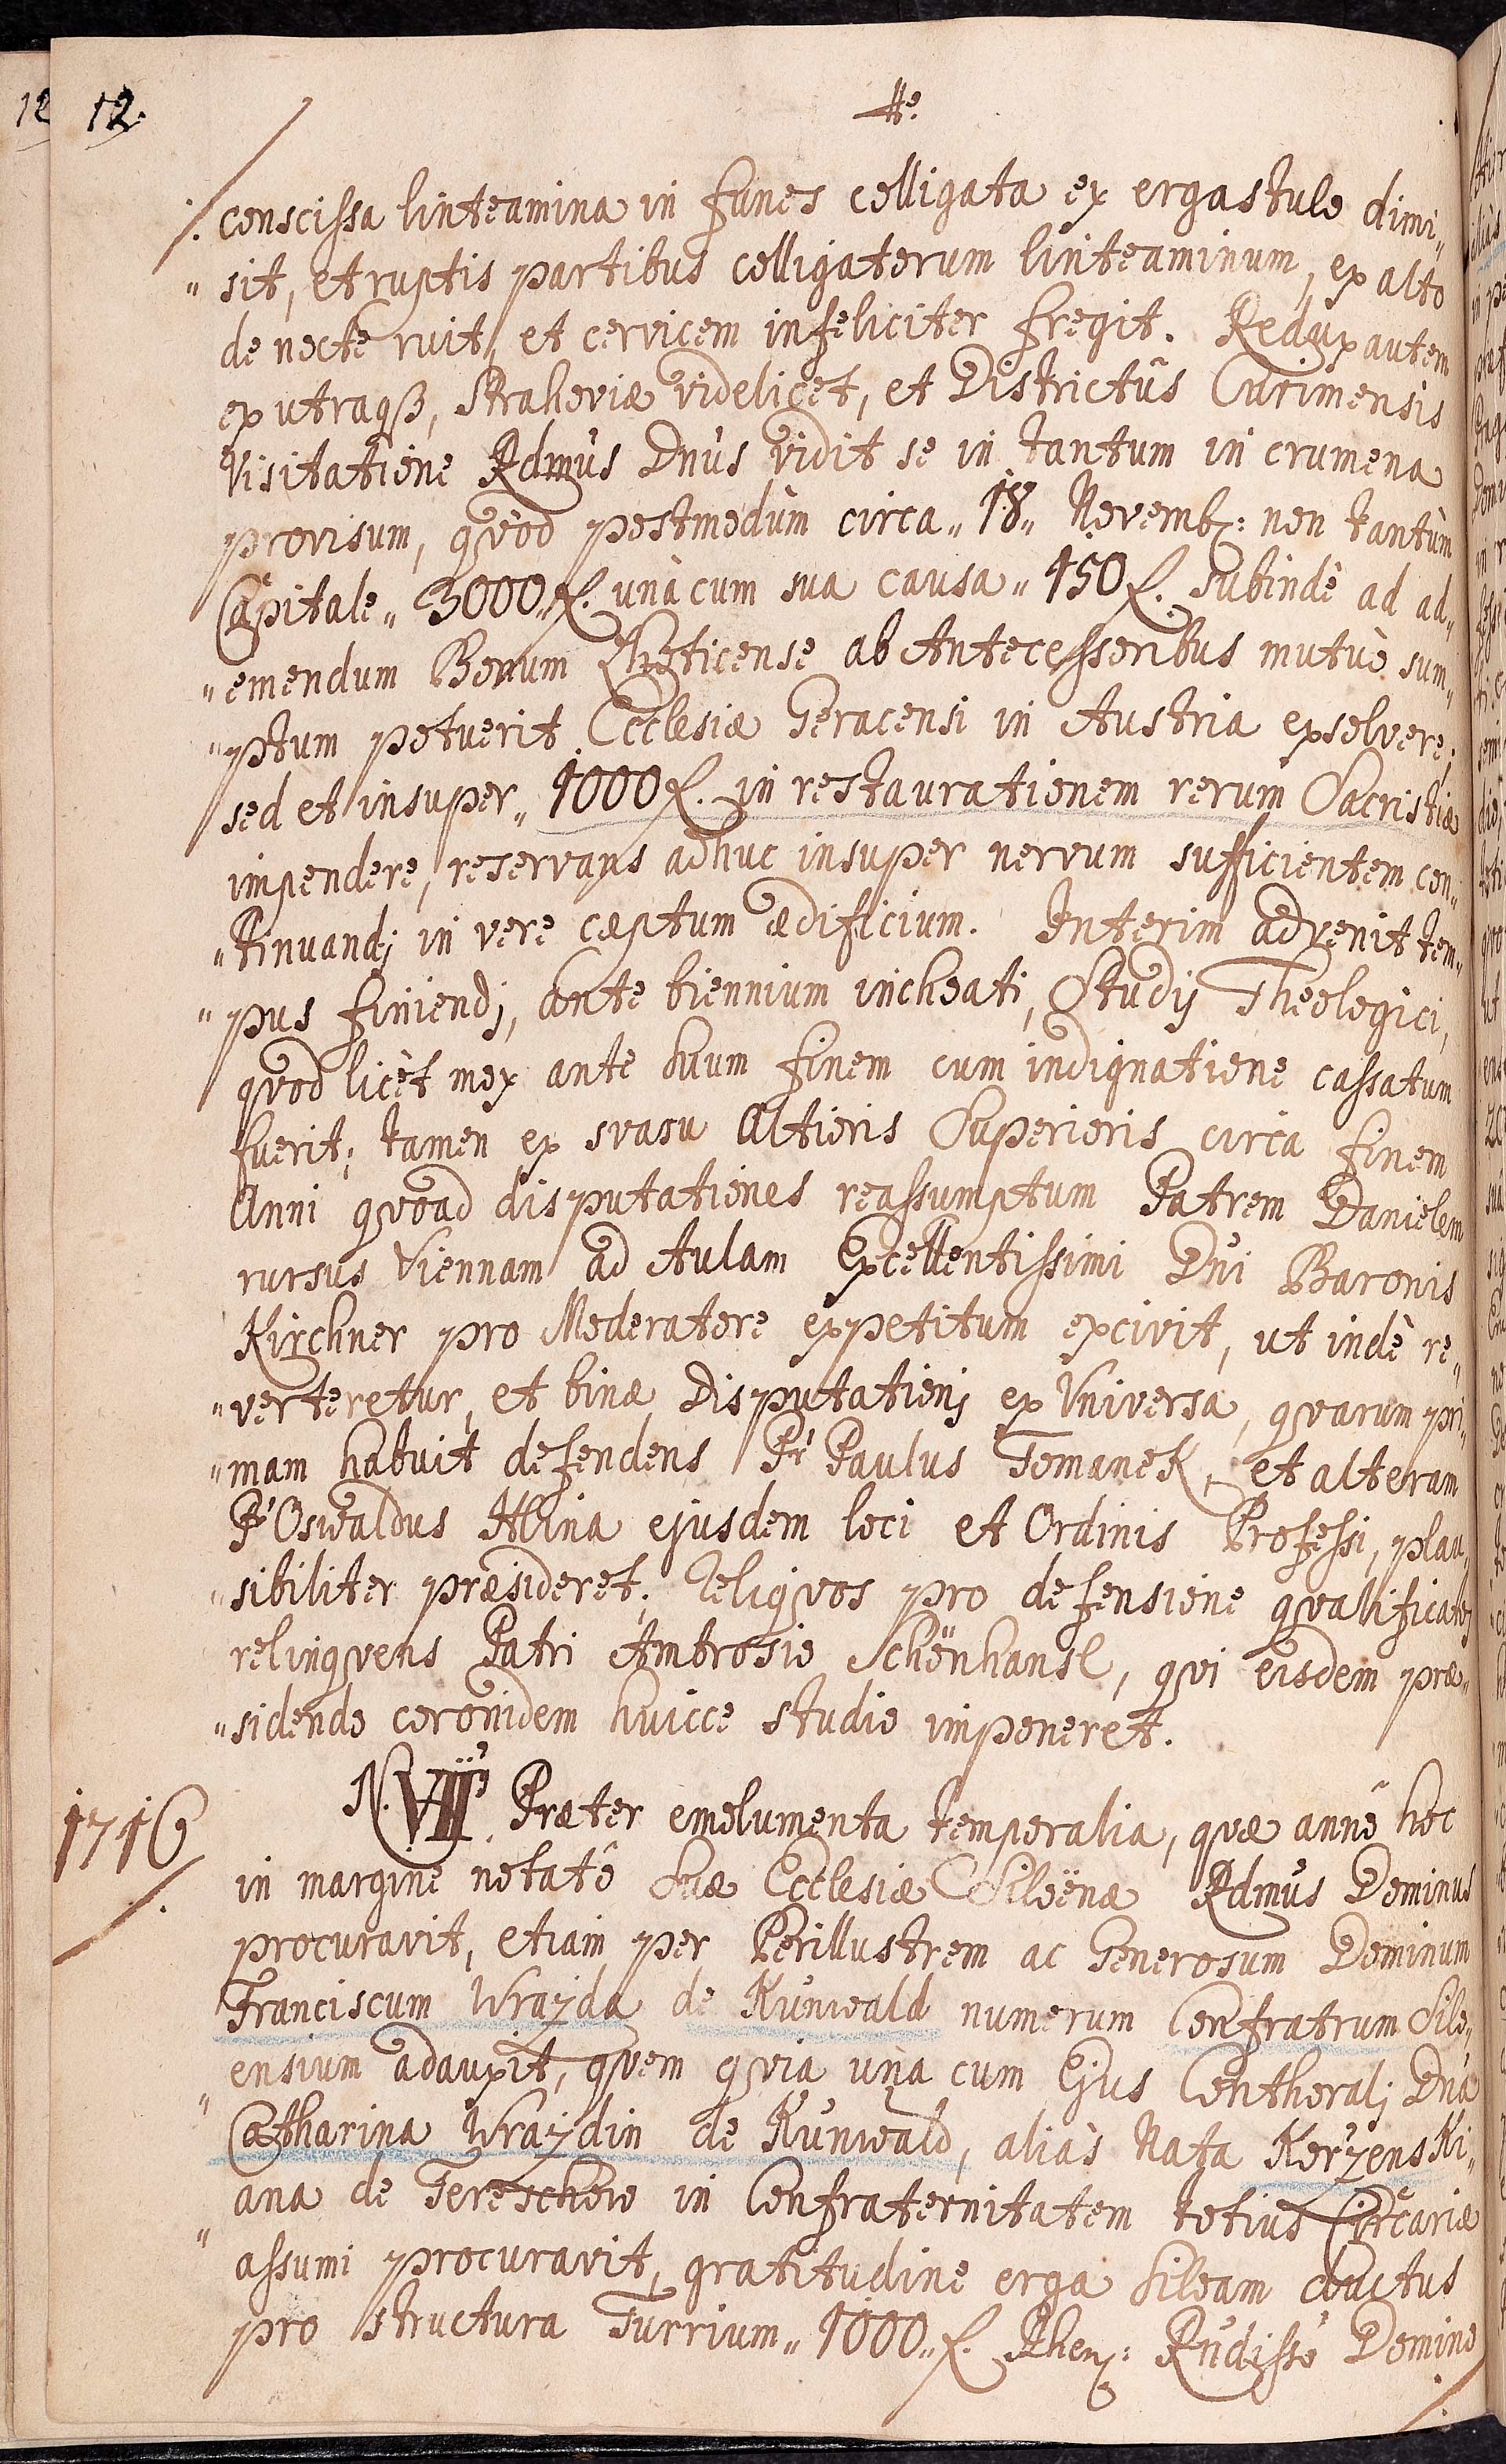 12 12.
conscissa linteamina in funes colligata ex ergastulo dimi„
„sit, et ruptis partibus colligatorum linteaminum, ex alto
de nocte ruit, et cervicem infeliciter fregit. Redux autem
ex utraqß, Strahoviæ videlicet, et Districtûs Curimensis
Visitatione Rdmus Dnus vidit se in tantum in crumena
provisum, qvòd postmodùm circa „18„ Novemb: non tantùm
Capitale „3000„ f. unà cum sua causa „150 f. subindè ad ad„
„emendum Bonum ab Antecessoribus mutuò sum„
„ptum potuerit Ecclesiæ Geracensi in Austria exsolvere;
sed et insuper „1000 f. in restaurationem rerum Sacristiæ
impendere, reservans adhuc insuper nervum sufficientem con„
„tinuandj in vere cæptum ædificium. Interim advenit tem„
„pus finiendj, ante biennium inchoati, Studij Theologici,
qvod licèt mox ante suum finem cum indignatione cassatum
fuerit; tamen ex svasu Altioris Superioris circa finem
Anni qvoad disputationes reassumptum Patrem Danielem
rursus Viennam ad Aulam Excellentissimi Dni Baronis
Kirchner pro Moderatore expetitum excivit, ut indè re„
„verteretur, et binæ Disputationj ex Vniversa, qvarum pri„
„mam habuit defendens Pr Paulus Tomanek, et alteram
Pr Oswaldus Hlina ejusdem loci et Ordinis Professi, plau„
„sibiliter præsideret; reliqvos pro defensione qvalificatos
relinqvens Patri Ambrosio Schönhansl, qvi eisdem præ„
„sidendo coronidem huicce studio imponeret.
1716
N. VII. Præter emolumenta temporalia, quæ annô hoc
in margine notatô suæ Ecclesiæ Siloënæ Rdmus Dominus
procuravit, etiam per Perillustrem ac Generosum Dominum
Franciscum Wrazda de Kunwald numerum Confratrum Silo„
„ensium adauxit, qvem qvia unà cum Ejus Conthoralj Dna
Catharina Wrazdin de Kunwald, aliàs Nata KorzensKi„
„ana de Tereschow in Confraternitatem totius Circariæ
assumi procuravit, gratitudine erga Siloam ductus
pro structura Turrium „1000„ f. Rhen: Rndisso Domino